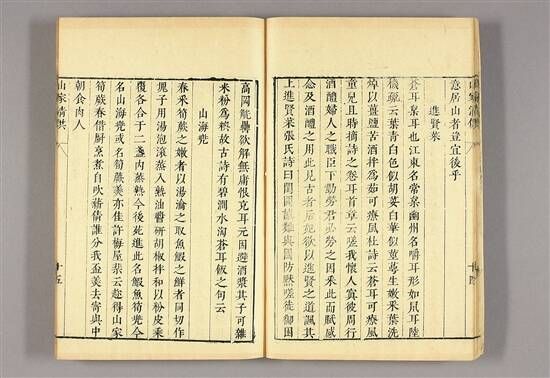 意居山者豈宜後乎
進賢菜
蒼耳枲耳也江東名常枲幽州名爵耳形如鼠耳陸
璣疏云葉青白色似胡荽白華細莖蔓生嫩采葉洗
焯以薑鹽苦酒拌為茹可療風杜詩云蒼耳可療風
童兒且時摘詩之卷耳首章云嗟我懷人寘彼周行
酒醴婦人之職臣下勤勞君必勞之因采此而賦感
念及酒醴之用此見古者后妃欲以進賢之道諷其
上進賢菜張氏詩曰閨閫誠難與國防默嗟徒御困
高岡觥罍欲解無庸恨充耳元因避酒漿其子可雜
米粉為糗故古詩有碧澗水淘蒼耳飯之句云
山海兜
春采筍蕨之嫩者以湯瀹之取魚蝦之鮮者同切作
塊子用湯泡滾蒸入熟油醬研胡椒拌和以粉皮乘
覆各合于二盞內蒸熟今後苑進此名蝦魚筍兜今
名山海兜或名筍蕨羹亦佳許梅屋棐云趁得山家
筍蕨春借廚烹煮自吹薪倩誰分我盃羹去寄與中
朝食肉人
山家清供
十五